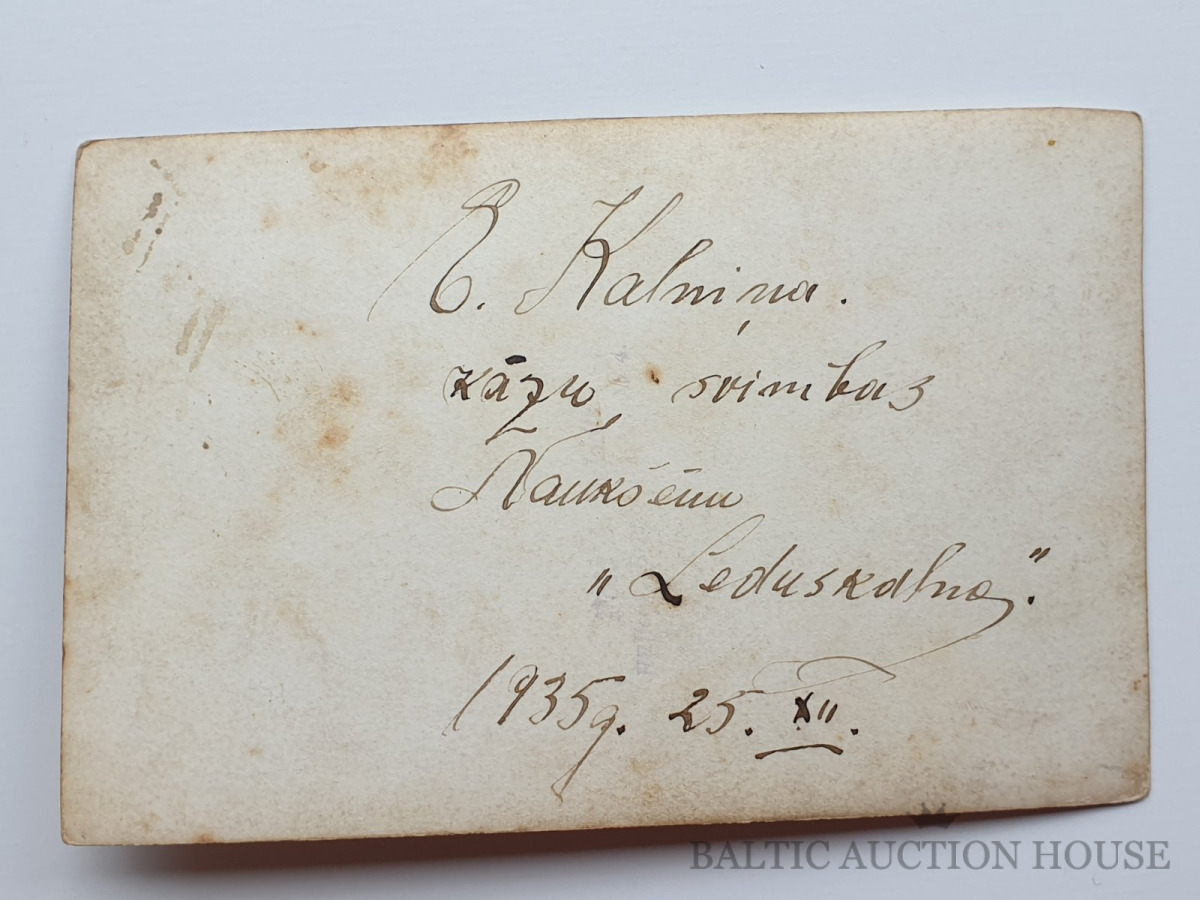 E. Kalniņa.
kāzu svinības
Naukšēnu
"Leduskalnā".
1935g. 25. XII.
BALTIC AUCTION HOUSE